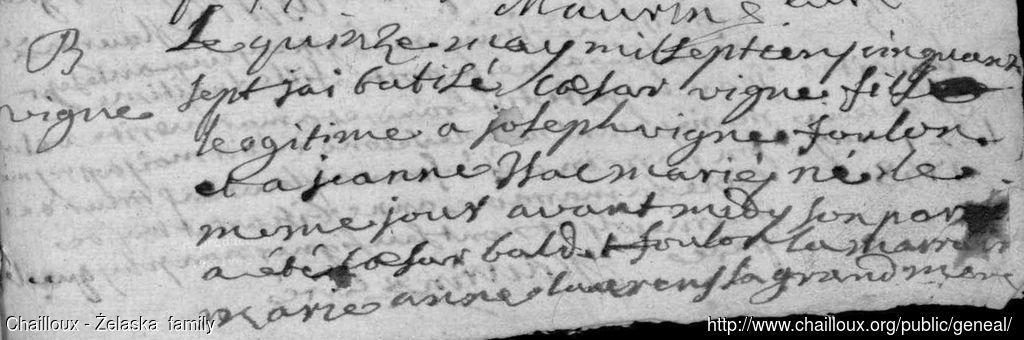 Maurin
B
vigne
Le quinze may mil sept cens cinquante
sept jai batisé Cæsar vigne fils
legitime a joseph vigne foulon
et a jeanne Isac mariés né le
meme jour avant midy son par
a été Cæsar bald et foulon la marrein
marie anne laurens sa grand mere
Chailloux - Żelaska family
http://www.chailloux.org/public/geneal/